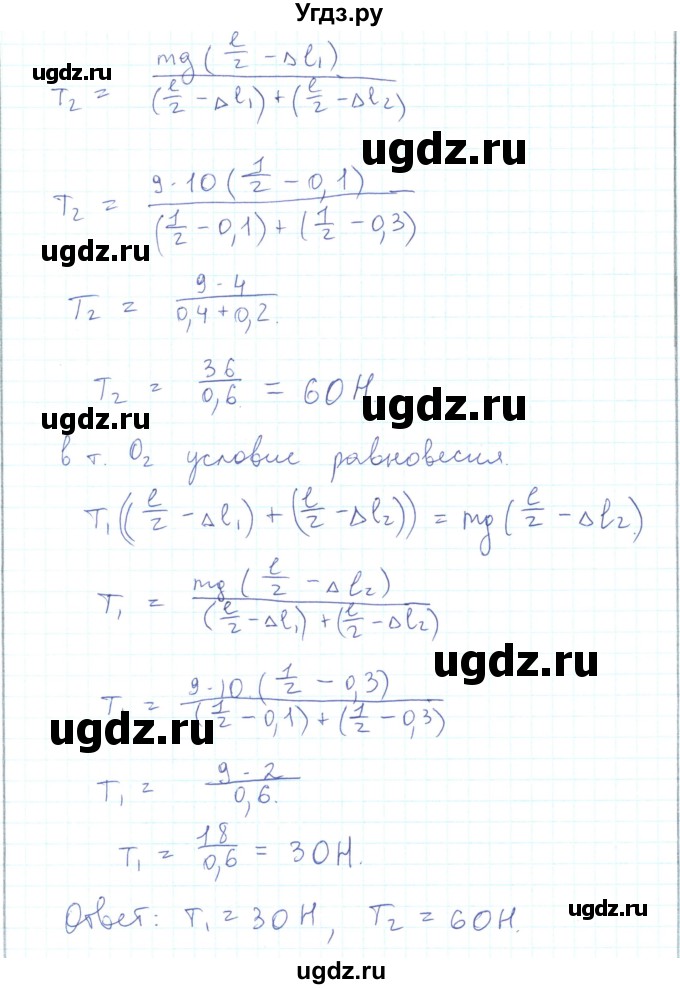 Угдз.ру
T₂ = mg(l/2 - Δl₁) / ((l/2 - Δl₁) + (l/2 - Δl₂))
ugdz.ru
ugdz.ru
T₂ = 9·10(1/2 - 0,1) / ((1/2 - 0,1) + (1/2 - 0,3))
ugdz.ru
T₂ = 9·4 / (0,4+0,2).
T₂ = 36/0,6 = 60Н
ugdz.ru
ugdz.ru
в т. O₂ условие равновесия.
T₁((l/2 - Δl₁) + (l/2 - Δl₂)) = mg(l/2 - Δl₂)
T₁ = mg(l/2 - Δl₂) / ((l/2 - Δl₁) + (l/2 - Δl₂))
ugdz.ru
T₁ = 9·10·(1/2 - 0,3) / ((1/2 - 0,1) + (1/2 - 0,3))
ugdz.ru
T₁ = 9·2 / 0,6.
T₁ = 18/0,6 = 30Н.
Ответ: T₁ = 30Н, T₂ = 60Н.
ugdz.ru
ugdz.ru